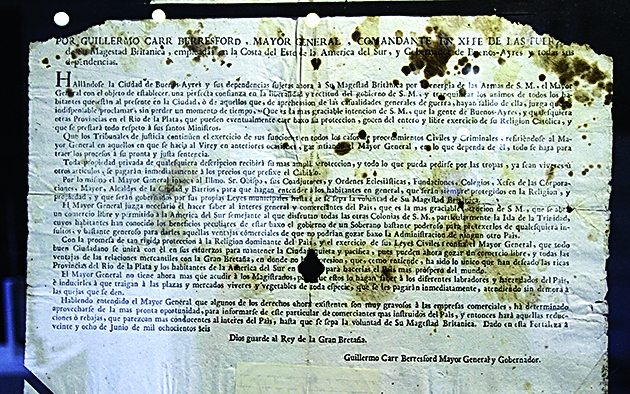 POR GUILLERMO CARR BERRESFORD, MAYOR GENERAL, COMANDANTE EN XEFE DE LAS
de Su Magestad Britanica, empleadas en la Costa del Este de la America del Sur, y Gobernador de Buenos-Ayres y todas sus
dependencias.
HAllándose la Ciudad de Buenos-Ayres y sus dependencias sujetas ahora à Su Magestad Británica por la energía de las Armas de S. M., el Mayor
General con el objeto de establecer una perfecta confianza en la liberalidad y rectitud del gobierno de S. M., y tranquilizar los animos de todos los ha-
bitantes que están al presente en la Ciudad, ò de aquellos que, de aprehension de las casualidades generales de guerra, hayan salido de ella, juzga que
indispensable proclamar, sin perder un momento de tiempo. Que es la mas graciable intencion de S. M., que la gente de Buenos-Ayres, y qualesquiera
otras Provincias en el Rio de la Plata, que pueden eventualmente caer baxo su proteccion, gocen del entero y libre exercicio de su Religion Católica, y
que se prestará todo respeto à sus santos Ministros.
Que los Tribunales de justicia continúen el exercicio de sus funciones en todos los casos de procedimientos Civiles y Criminales, refiriéndose al Ma-
yor General en aquellos en que se hacía al Virey en anteriores ocasiones, garantiendo el Mayor General, en lo que dependa de él, todo se hará para
traer los procesos à su pronta y justa sentencia.
Toda propiedad privada de qualquiera descripcion recibirá su mas amplia proteccion, y todo lo que pueda pedirse por las tropas, ya sean víveres ú
otros articulos, se pagarán inmediatamente à los precios que prefixe el Cabildo.
Por lo mismo el Mayor General invoca al Illmo. Sr. Obispo, sus Coadjutores, y Ordenes Eclesiásticas, Fundaciones, Colegios, Xefes de las Corpora-
ciones, Mayor, Alcaldes de la Ciudad y Barrios, para que hagan entender à los habitantes en general, que serán siempre protegidos en la Religion, y
propiedad, y que serán gobernados por sus propias Leyes municipales hasta que se sepa la voluntad de Su Magestad Britanica.
El Mayor General juzga necesario el hacer saber al interes general y comerciantes del Pais, que es la mas graciable intencion de S. M., que se abra
un comercio libre y permitido à la America del Sur semejante al que disfrutan todas las otras Colonias de S. M., particularmente la Isla de la Trinidad,
cuyos habitantes han conocido los beneficios peculiares de estar baxo el gobierno de un Soberano bastante poderoso para protegerlos de qualquiera in-
sultos, y bastante generoso para darles aquellas ventajas comerciales de que no podrian gozar baxo la Administracion de ningun otro Pais.
Con la promesa de tan rígida protección à la Religion dominante del Pais, y el exercicio de sus Leyes Civiles confia el Mayor General, que todo
buen Ciudadano se unirá con él en sus esfuerzos para mantener la Ciudad quieta y pacifica, pues pueden ahora gozar un comercio libre, y todas las
ventajas de las relaciones mercantiles con la Gran Bretaña, en donde no hay opresion, y que, como entiende, ha sido lo único que han deseado las ricas
Provincias del Rio de la Plata y los habitantes de la America del Sur en general para hacerlas el Pais mas próspero del mundo.
El Mayor General no tiene ahora mas que acudir à los Magistrados, para que estos lo hagan saber à los diferentes labradores y hacendados del Pais,
è inducirles à que traigan à las plazas y mercados víveres y vegetables de toda especie, que se les pagarán inmediatamente, atendiendo sin demora à
las quejas que se den.
Habiendo entendido el Mayor General que algunos de los derechos ahora existentes son muy gravosos à las empresas comerciales, ha determinado
aprovecharse de la mas pronta oportunidad, para informarse de este particular de comerciantes mas instruidos del Pais, y entonces hará aquellas reduc-
ciones ò rebajas, que parezcan mas conducentes al interes del Pais, hasta que se sepa la voluntad de Su Magestad Britanica. Dado en esta Fortaleza à
veinte y ocho de Junio de mil ochocientos seis
Dios guarde al Rey de la Gran Bretaña.
Guillermo Carr Berresford Mayor General y Gobernador.